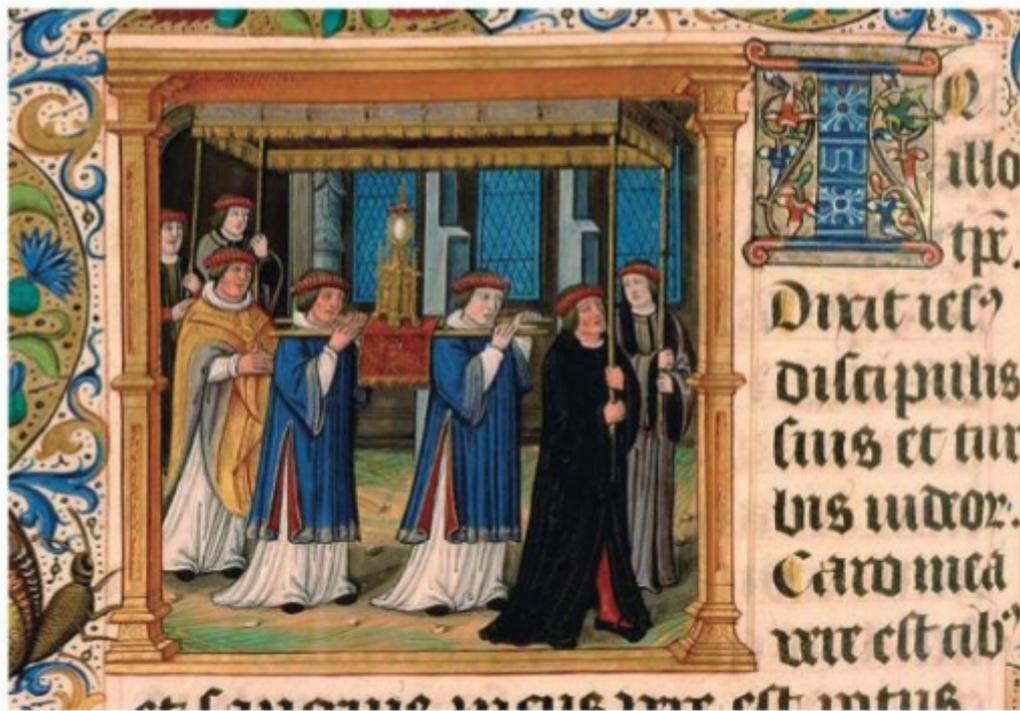 IN
illo
tp̄r.
Dixit iesꝰ
discipulis
suis et tur
bis iudeor.
Caro mea
vere est cibꝰ
et sanguis meus vere est potus